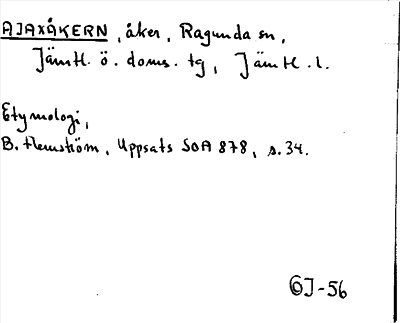 AJAXÅKERN, åker, Ragunda sn,
Jämtl. ö. doms. tg, Jämtl. l.
Etymologi,
B. Flemström, Uppsats SOA 878, s. 34.
OJ-56